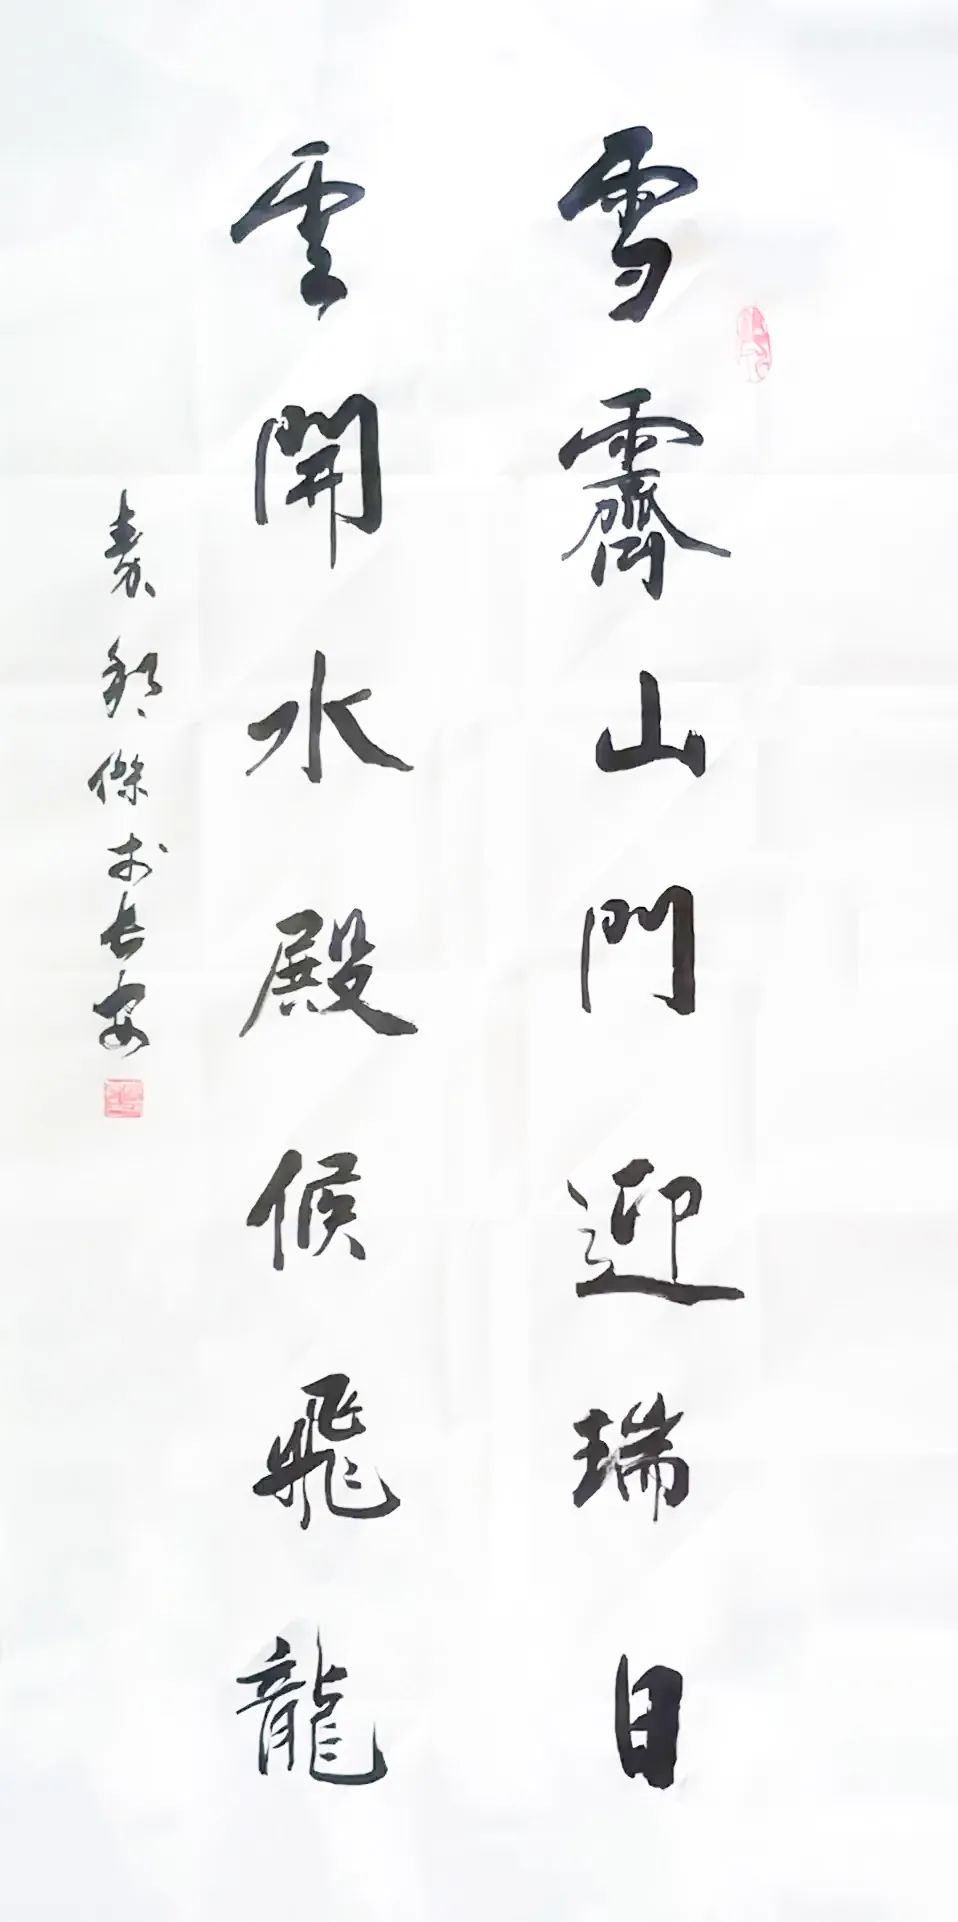 雪霽山門迎瑞日
雲開水殿候飛龍
傑於長安